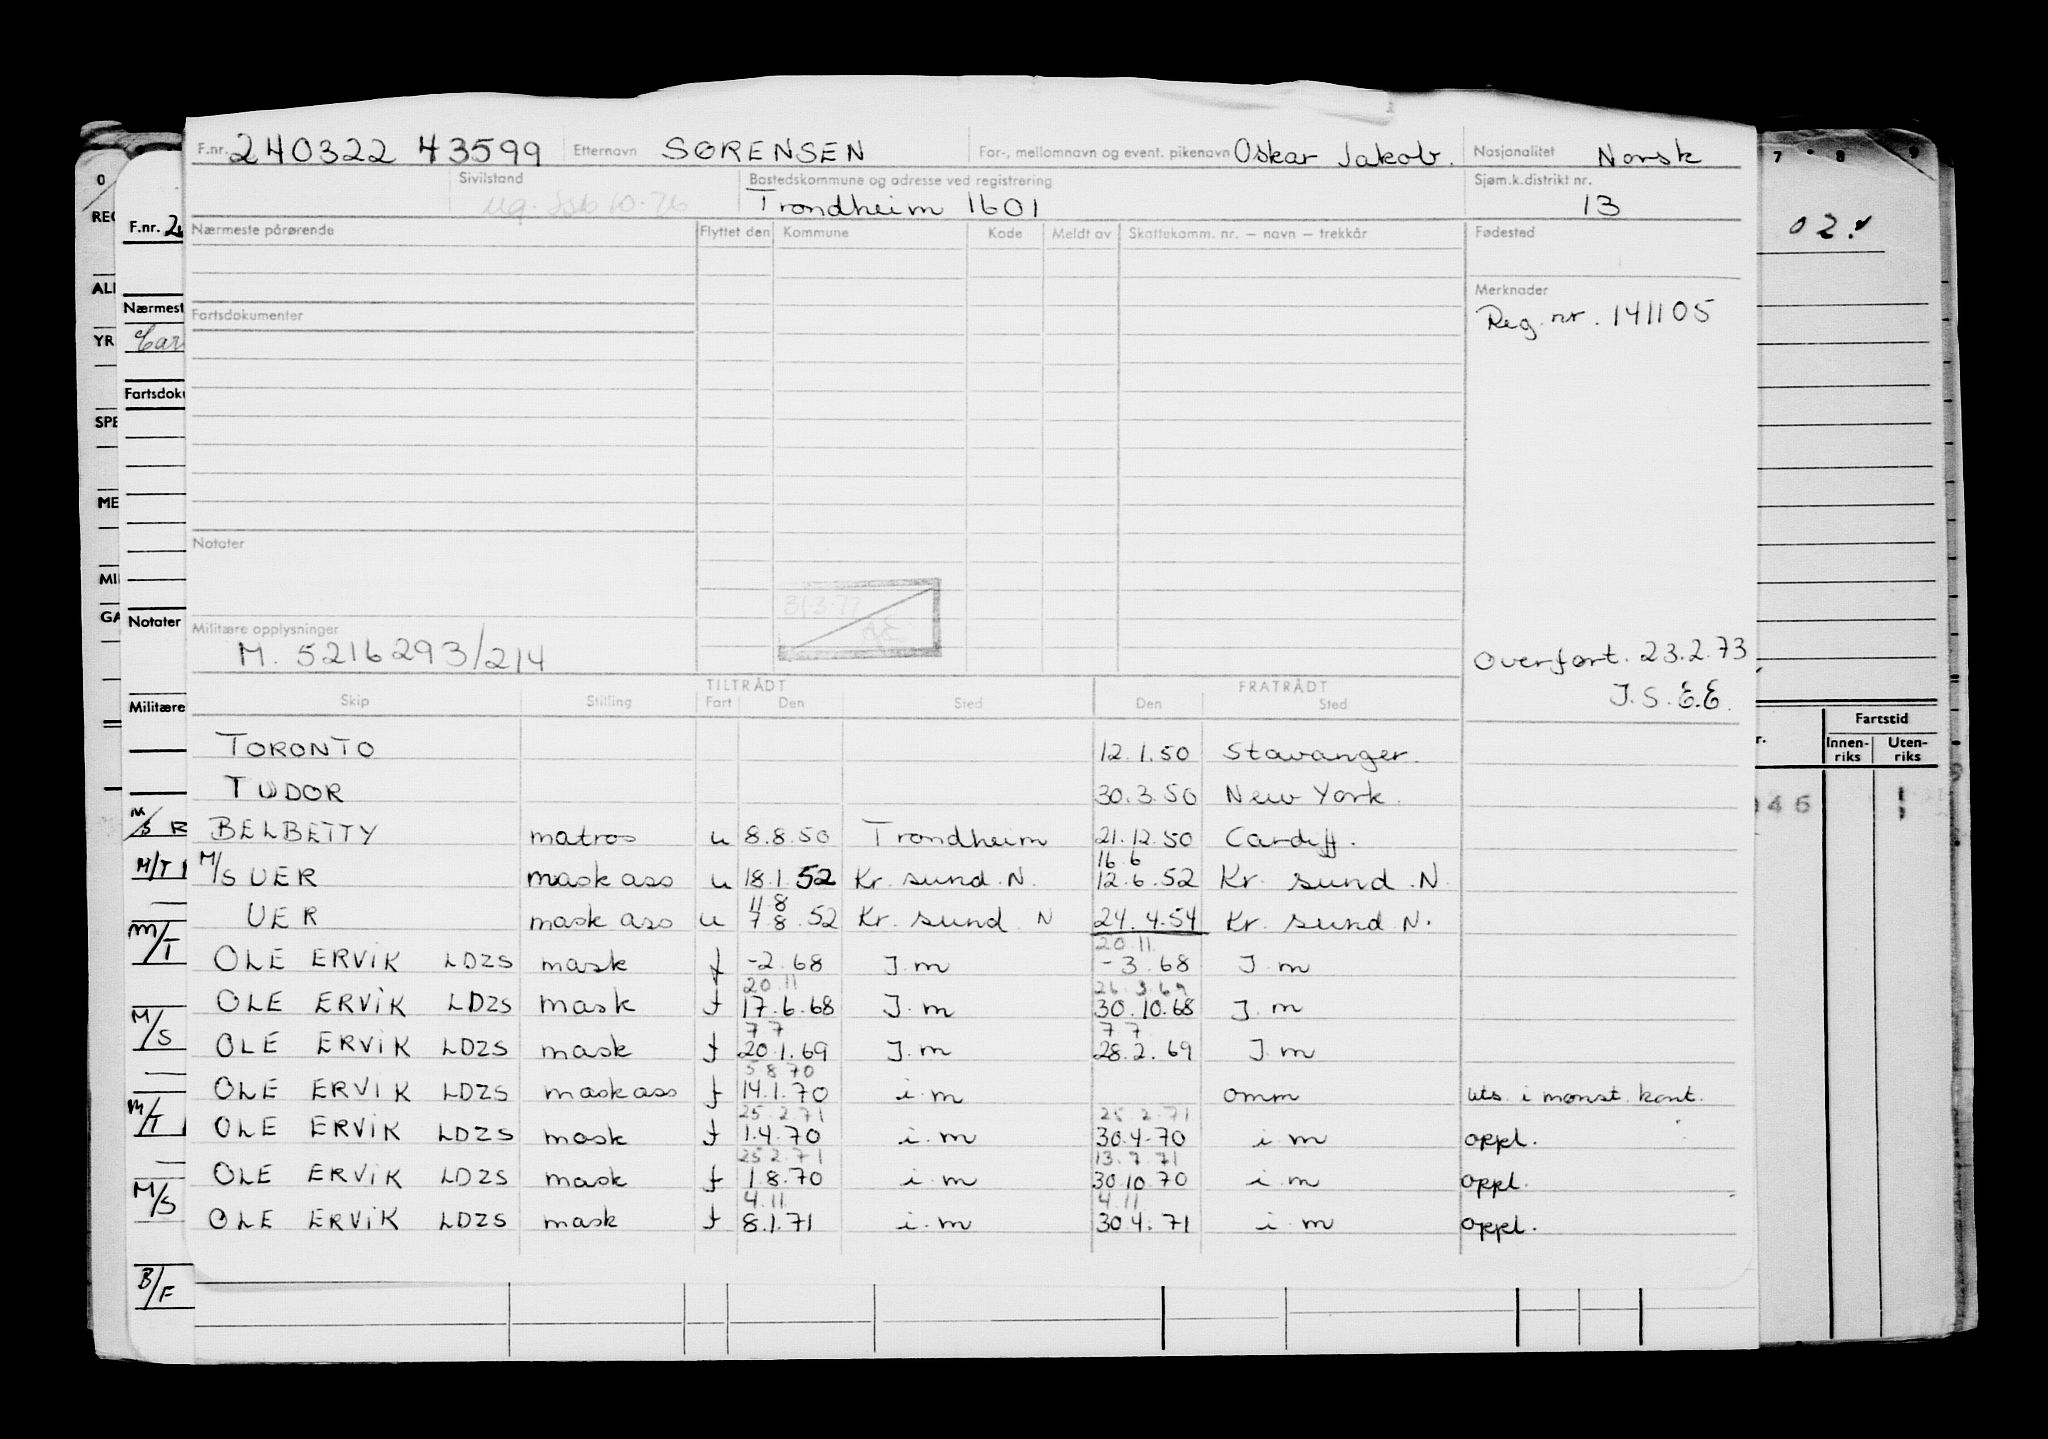 F.nr. 240322 43599 Etternavn SØRENSEN For-, mellomnavn og event. pikenavn Oskar Jakob. Nasjonalitet Norsk
Sivilstand Bostedskommune og adresse ved registrering Sjøm.k.distrikt nr.
Trondheim 1601 13
Nærmeste pårørende Flyttet den Kommune Kode Meldt av Skattekomm. nr. – navn – trekkår Fødested
Merknader
Fartsdokumenter Reg. nr. 141105
Notater
31.3.77
Militære opplysninger
M. 5216293/214 Overført. 23.2.73
J.S. E.E.
TILTRÅDT FRATRÅDT
Skip Stilling Fart Den Sted Den Sted
TORONTO 12.1.50 Stavanger.
TUDOR 30.3.50 New York.
BELBETTY matros u 8.8.50 Trondheim 21.12.50 Cardiff.
16.6
M/S UER mask ass u 18.1.52 Kr. sund. N. 12.6.52 Kr. sund. N.
11 8
UER mask ass u 7.8.52 Kr. sund N 24.4.54 Kr. sund N.
20.11.
OLE ERVIK LDZS mask f -2.68 J.m -3.68 J.m
20.11 26.3.69
OLE ERVIK LDZS mask f 17.6.68 J.m 30.10.68 J.m
7 7 7 7
OLE ERVIK LDZS mask f 20.1.69 J.m 28.2.69 J.m
5 8 70
OLE ERVIK LDZS mask ass f 14.1.70 i.m omm uts. i mønst. kont.
25.2.71 25.2.71
OLE ERVIK LDZS mask f 1.4.70 i.m 30.4.70 i.m oppl.
25 2.71 13.7.71
OLE ERVIK LDZS mask f 1.8.70 i.m 30.10.70 i.m oppl.
4.11 4.11
OLE ERVIK LDZS mask f 8.1.71 i.m 30.4.71 i.m oppl.
0
REG
ALL
YR
SPE
ME
MI
GA
F.nr. 2
Nærmest
Fartsdoku
Notater
Militære
M/S R
M/T
M/T
M/S
M/T
M/S
B/F
7 8 9
02.
Fartstid
r. Innen-riks Uten-riks